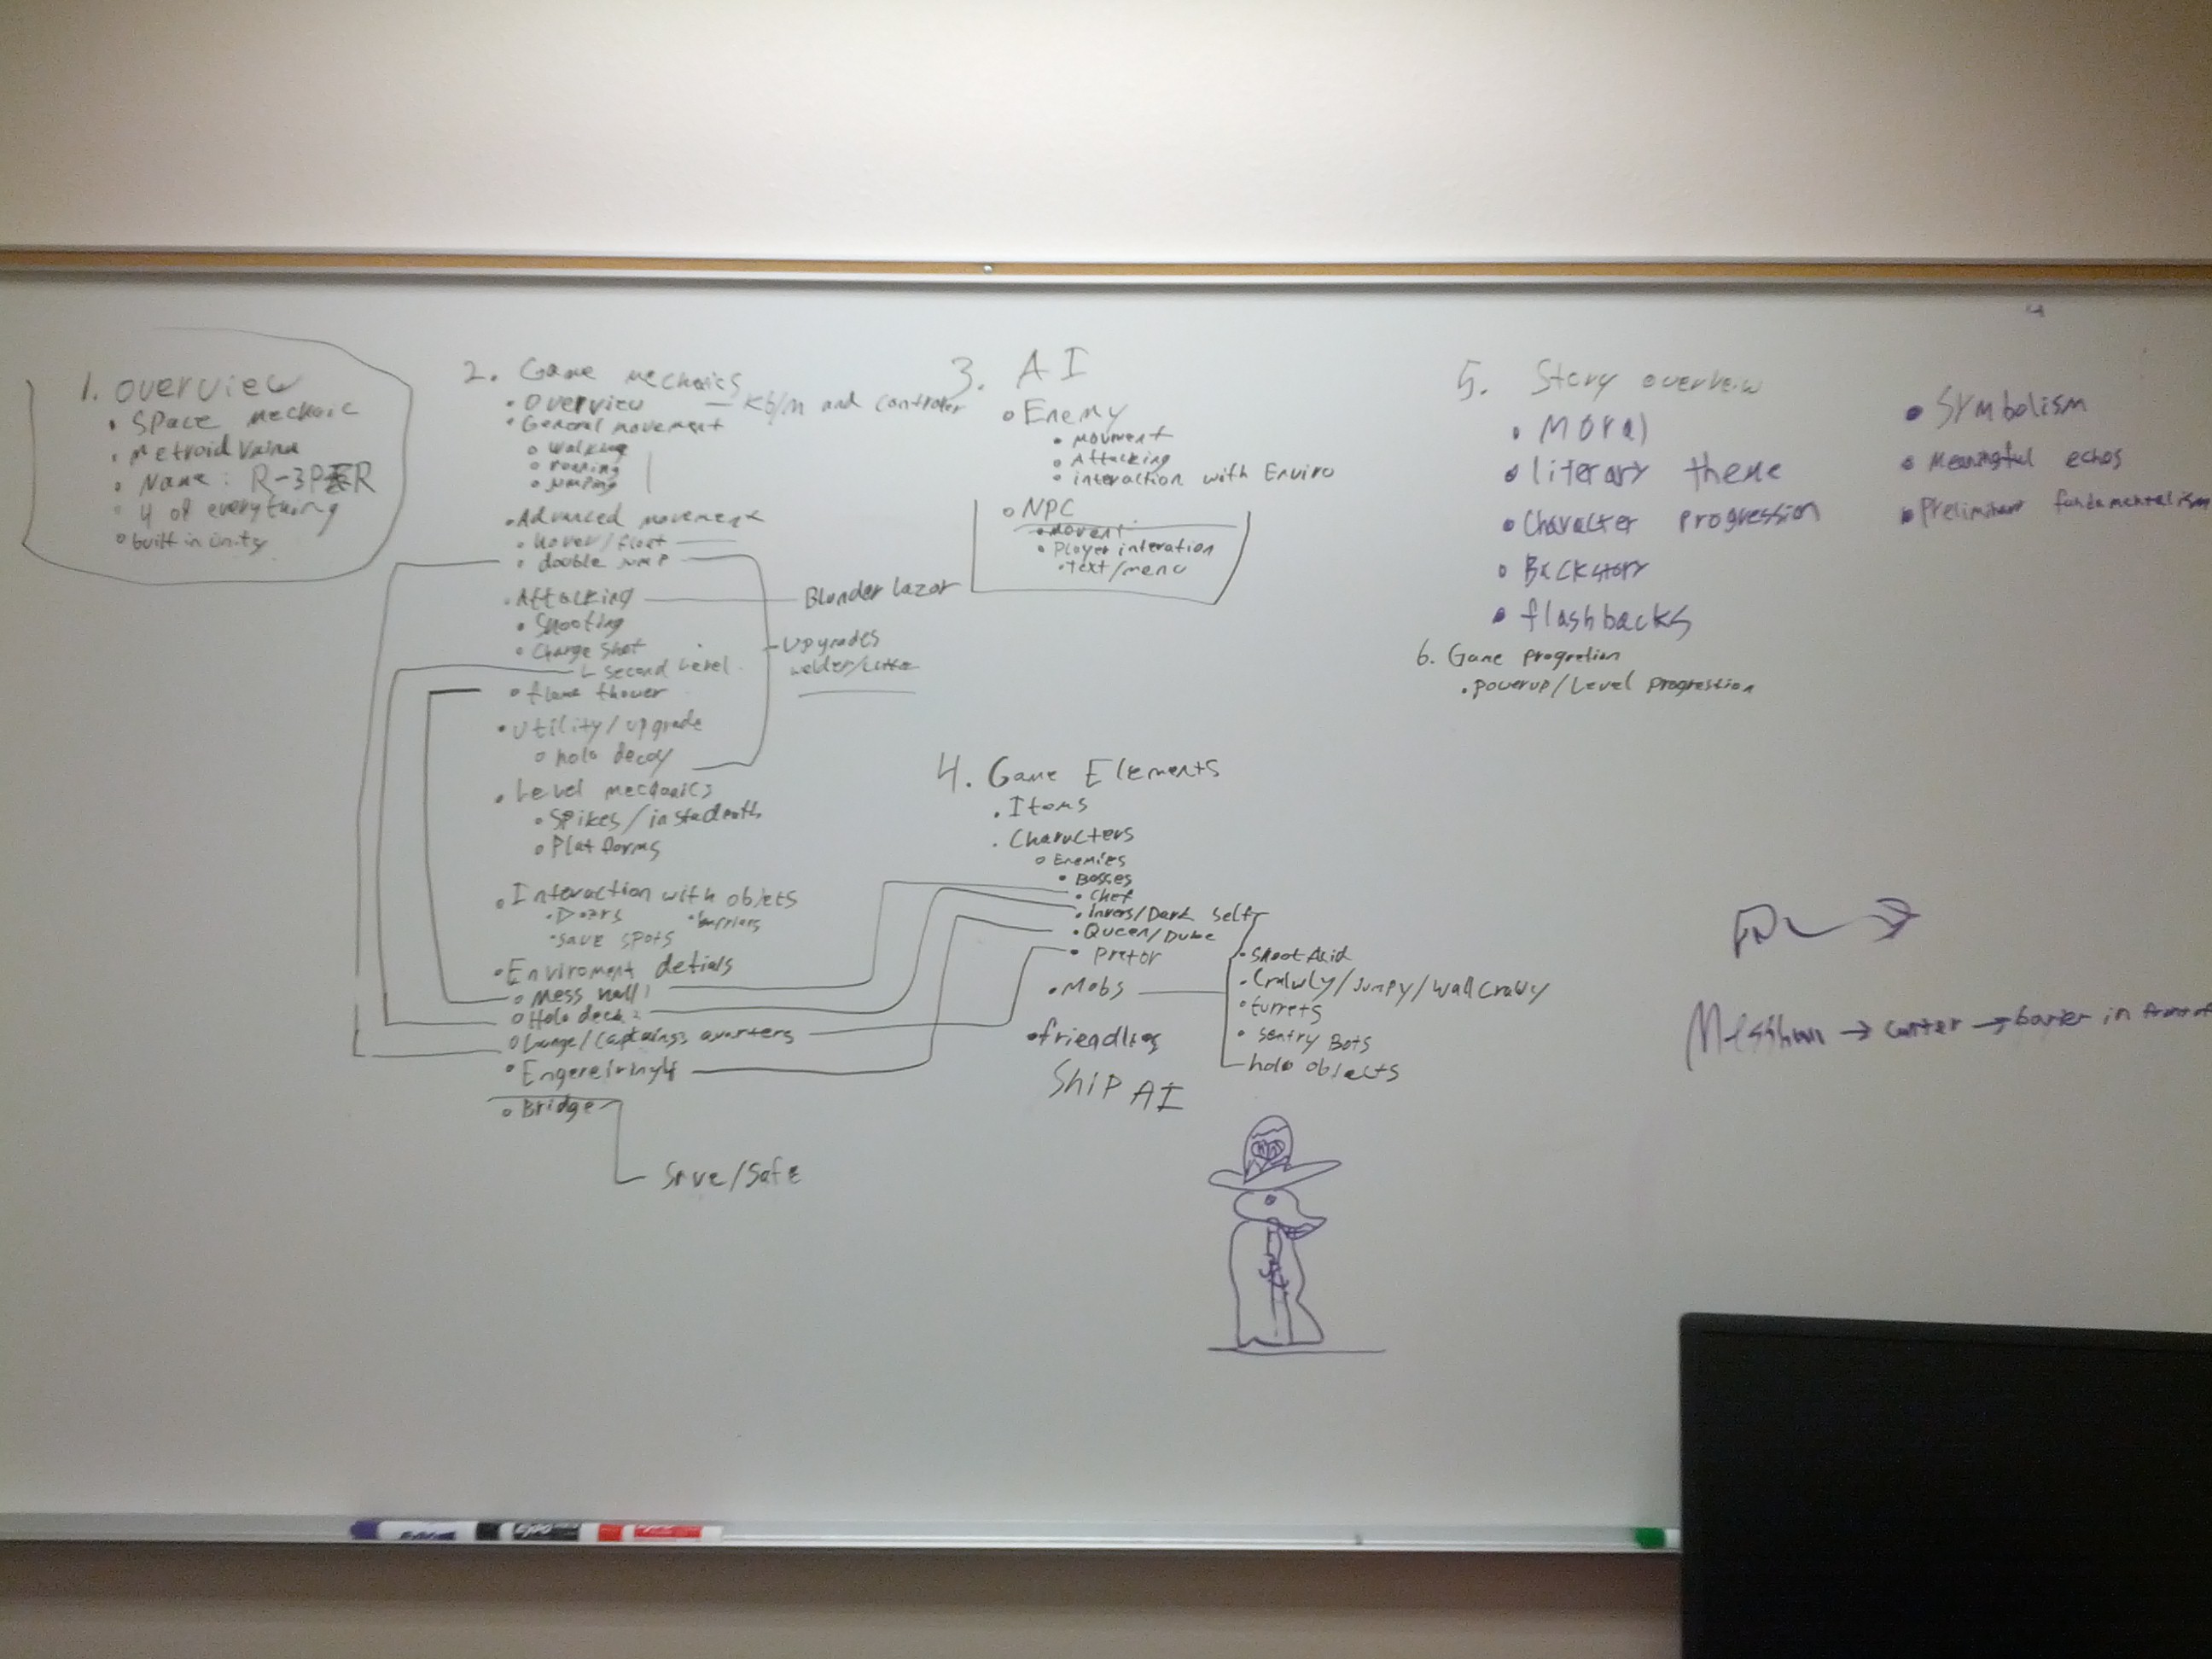 1. overview
• Space mechaic
• Metroid Vaina
• Name: R-3PER
• 4 of everything
• built in unity
2. Game mechaics
• Overview — Kb/m and controler
• General movement
• walking
• running
• jumping
• Advanced movement
• hover/float
• double jump
• Attacking — Blunder Lazor
• Shooting
• Charge Shot
Second Level
• flame thower
Upgrades
welder/
• Utility/upgrade
• holo decoy
• Level mechanics
• Spikes/instadeath
• Platforms
• Interaction with objets
• Doors • barriors
• save spots
• Enviroment detials
• Mess hall 1
• Holo deck 2
• Lounge/Captains quarters
•
• Bridge
Save/Safe
3. AI
• Enemy
• Movment
• Attacking
• interaction with Enviro
• NPC
• Movent
• Player interation
• text/menu
4. Game Elements
• Items
• Characters
• Enemies
• Bosses
• Chef
• Invers/Dark self
• Queen/
• Pretor
• Mobs
• Shoot Acid
• Crawly/Jumpy/Wall Crawly
• turrets
• Sentry Bots
holo objects
• friendlies
Ship AI
5. Story overview
• Moral
• literary theme
• Character progression
• Backstory
• flashbacks
• Symbolism
• Meaningful echos
• Preliminary fundamentalism
6. Game progretion
• powerup/Level progresstion
→ cutter → barier in front of